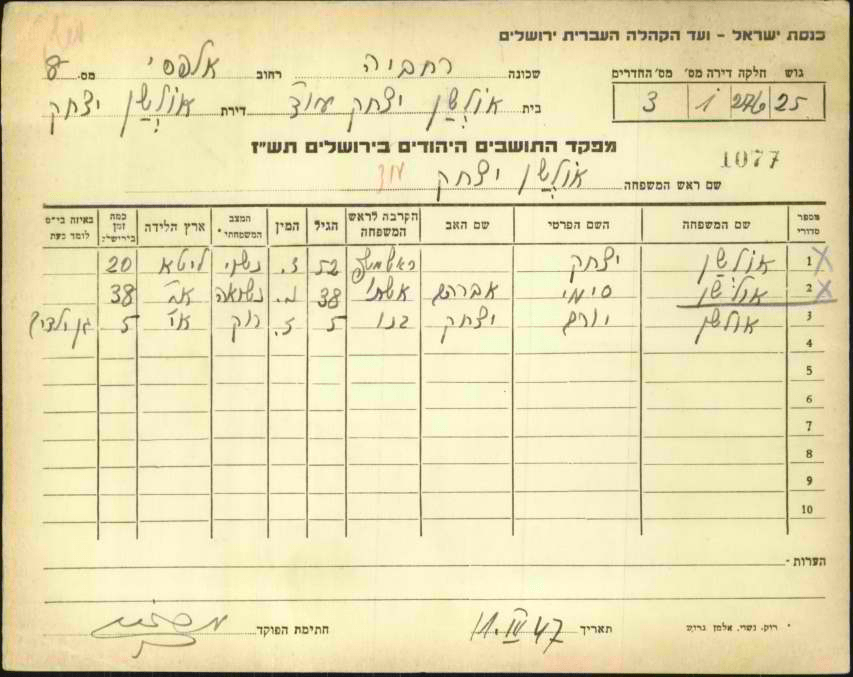 כנסת ישראל - ועד הקהלה העברית ירושלים
גוש חלקה דירה מס' מס' החדרים
25 276 1 3
שכונה רחביה רחוב אלפסי מס. 8
בית אולשן יצחק עו"ד דירת אולשן יצחק
מפקד התושבים היהודים בירושלים תש"ז
1077
שם ראש המשפחה אולשן יצחק
מספר סדורי שם המשפחה השם הפרטי שם האב הקרבה לראש המשפחה הגיל המין המצב המשפחתי* ארץ הלידה כמה זמן בירושלים באיזה בי"ס לומד כעת
1 אולשן יצחק ראש משפ 52 ז. נשוי ליטא 20
2 אולשן סימי אברהם אשתו 38 נ. נשואה א"י 38
3 אולשן יורם יצחק בנו 5 ז. רוק א"י 5 גן ילדים
4
5
6
7
8
9
10
הערות
* רוק, נשוי, אלמן, גרוש תאריך 11.IV 47 חתימת הפוקד